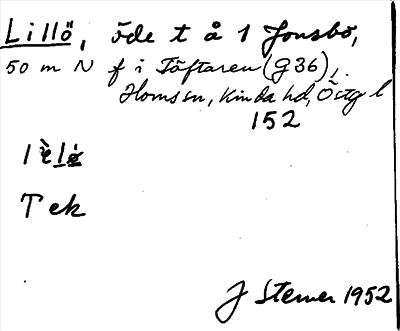 Lillö, öde t å 1 Jonsbo,
50 m N f i Töftaren (g36),
Homs sn, Kinda hd, Östg l
152
Tek
J Stemer 1952